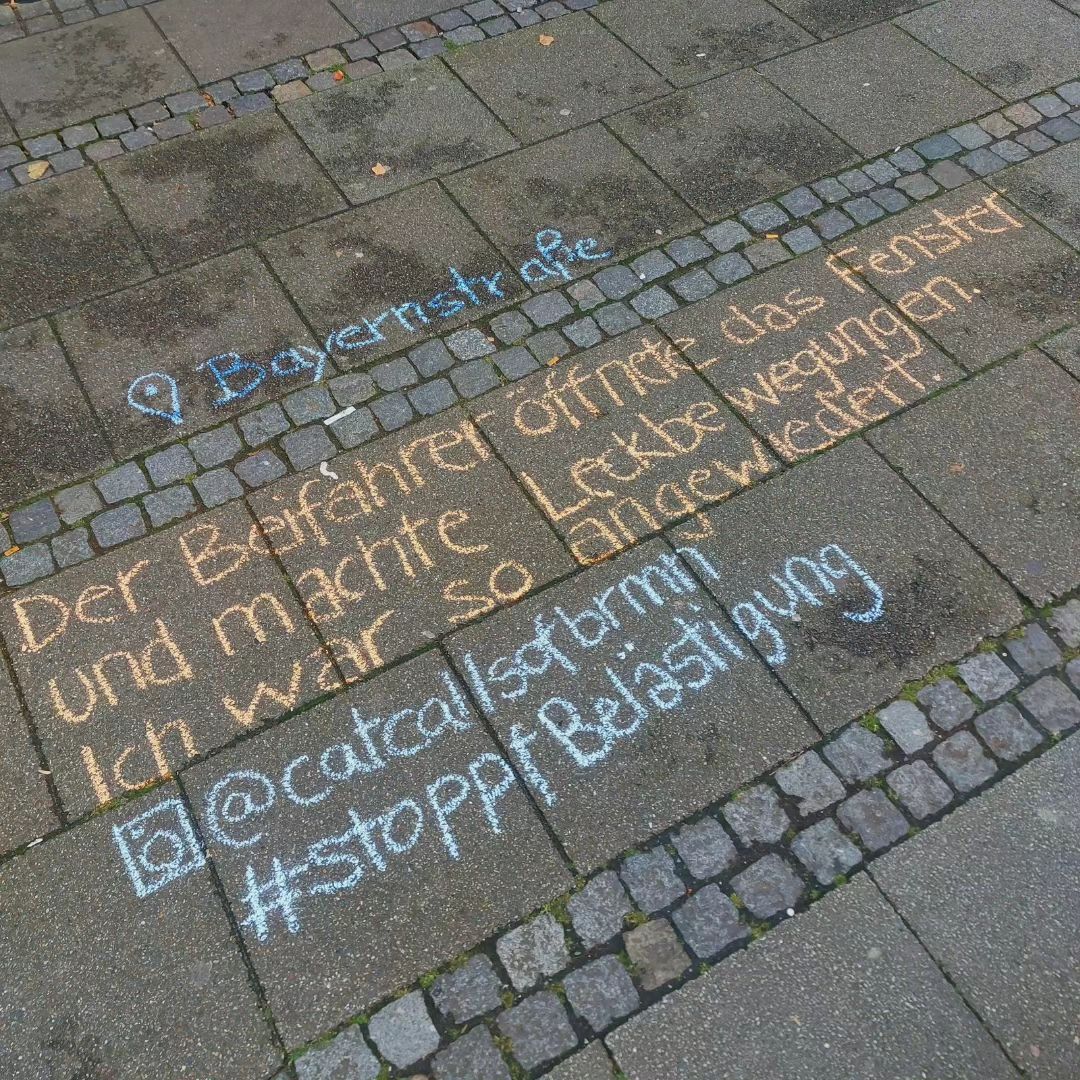 Bayernstraße
Der Beifahrer öffnete das Fenster
und machte Leckbewegungen.
Ich war so angewiedert.
@catcallsofbrmn
#stopptBelästigung